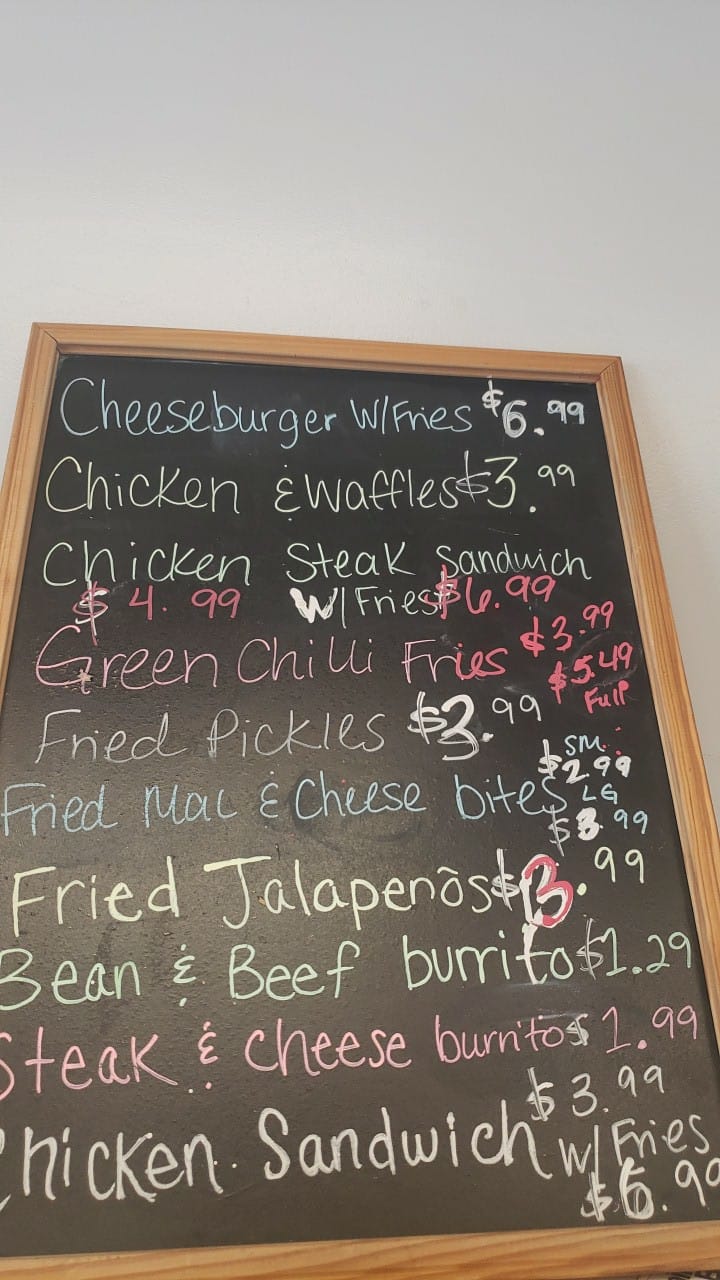 Cheeseburger W/Fries $6.99
Chicken & Waffles $3.99
Chicken Steak Sandwich
$4.99 W/Fries $6.99
Green Chilli Fries $3.99
$5.49
Full
Fried Pickles $3.99
SM:
$2.99
Fried Mac & Cheese bites LG
$3.99
Fried Jalapenõs $3.99
Bean & Beef burrito $1.29
Steak & Cheese burrito $1.99
$3.99
Chicken Sandwich W/Fries
$6.99